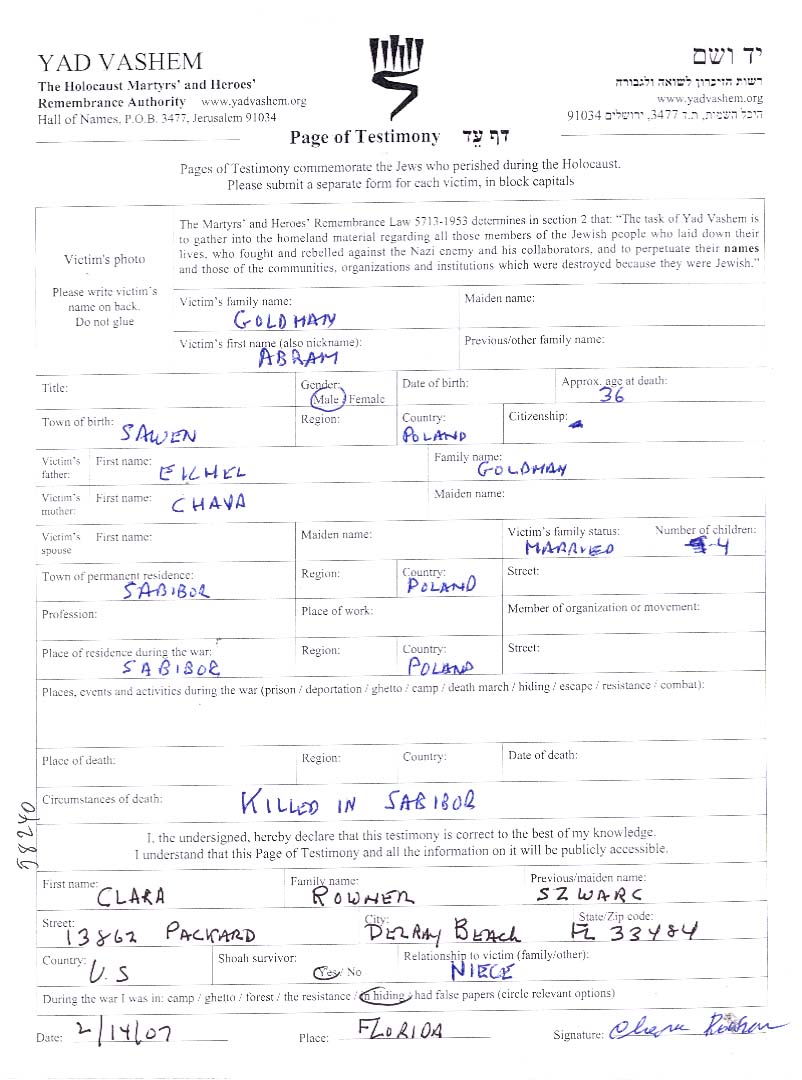 YAD VASHEM
The Holocaust Martyrs' and Heroes'
Remembrance Authority www.yadvashem.org
Hall of Names, P.O.B. 3477, Jerusalem 91034
יד ושם
רשות הזיכרון לשואה ולגבורה
www.yadvashem.org
היכל השמות, ת.ד 3477, ירושלים 91034
Page of Testimony דף עֵד
Pages of Testimony commemorate the Jews who perished during the Holocaust.
Please submit a separate form for each victim, in block capitals
Victim's photo
Please write victim's
name on back.
Do not glue
The Martyrs' and Heroes' Remembrance Law 5713-1953 determines in section 2 that: "The task of Yad Vashem is
to gather into the homeland material regarding all those members of the Jewish people who laid down their
lives, who fought and rebelled against the Nazi enemy and his collaborators, and to perpetuate their names
and those of the communities, organizations and institutions which were destroyed because they were Jewish."
Victim's family name: GOLDMAN Maiden name:
Victim's first name (also nickname): ABRAM Previous/other family name:
Title: Gender: Male / Female Date of birth: Approx. age at death: 36
Town of birth: SAWEN Region: Country: POLAND Citizenship:
Victim's father: First name: EICHEL Family name: GOLDMAN
Victim's mother: First name: CHAVA Maiden name:
Victim's spouse First name: Maiden name: Victim's family status: MARRIED Number of children: 4
Town of permanent residence: SABIBOR Region: Country: POLAND Street:
Profession: Place of work: Member of organization or movement:
Place of residence during the war: SABIBOR Region: Country: POLAND Street:
Places, events and activities during the war (prison / deportation / ghetto / camp / death march / hiding / escape / resistance / combat):
Place of death: Region: Country: Date of death:
Circumstances of death: KILLED IN SABIBOR
58240
I, the undersigned, hereby declare that this testimony is correct to the best of my knowledge.
I understand that this Page of Testimony and all the information on it will be publicly accessible.
First name: CLARA Family name: ROWNER Previous/maiden name: SZWARC
Street: 13862 PACKARD City: DELRAY BEACH State/Zip code: FL 33484
Country: U.S Shoah survivor: Yes / No Relationship to victim (family/other): NIECE
During the war I was in: camp / ghetto / forest / the resistance / in hiding / had false papers (circle relevant options)
Date: 2/14/07 Place: FLORIDA Signature: